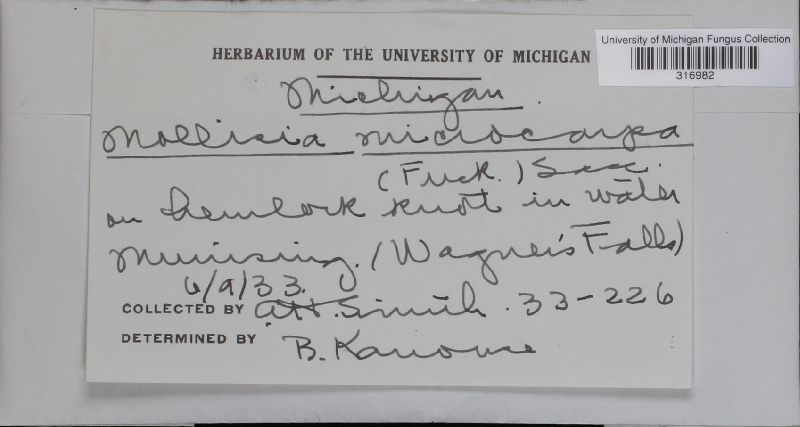 University of Michigan Fungus Collection
316982
HERBARIUM OF THE UNIVERSITY OF MICHIGAN
Michigan.
Mollisia microcarpa
(Fuck.) Sacc.
on hemlock knot in water
Munising. (Wagner's Falls)
6/9/33.
COLLECTED BY A.H. Smith. 33-226
DETERMINED BY B. Kanouse